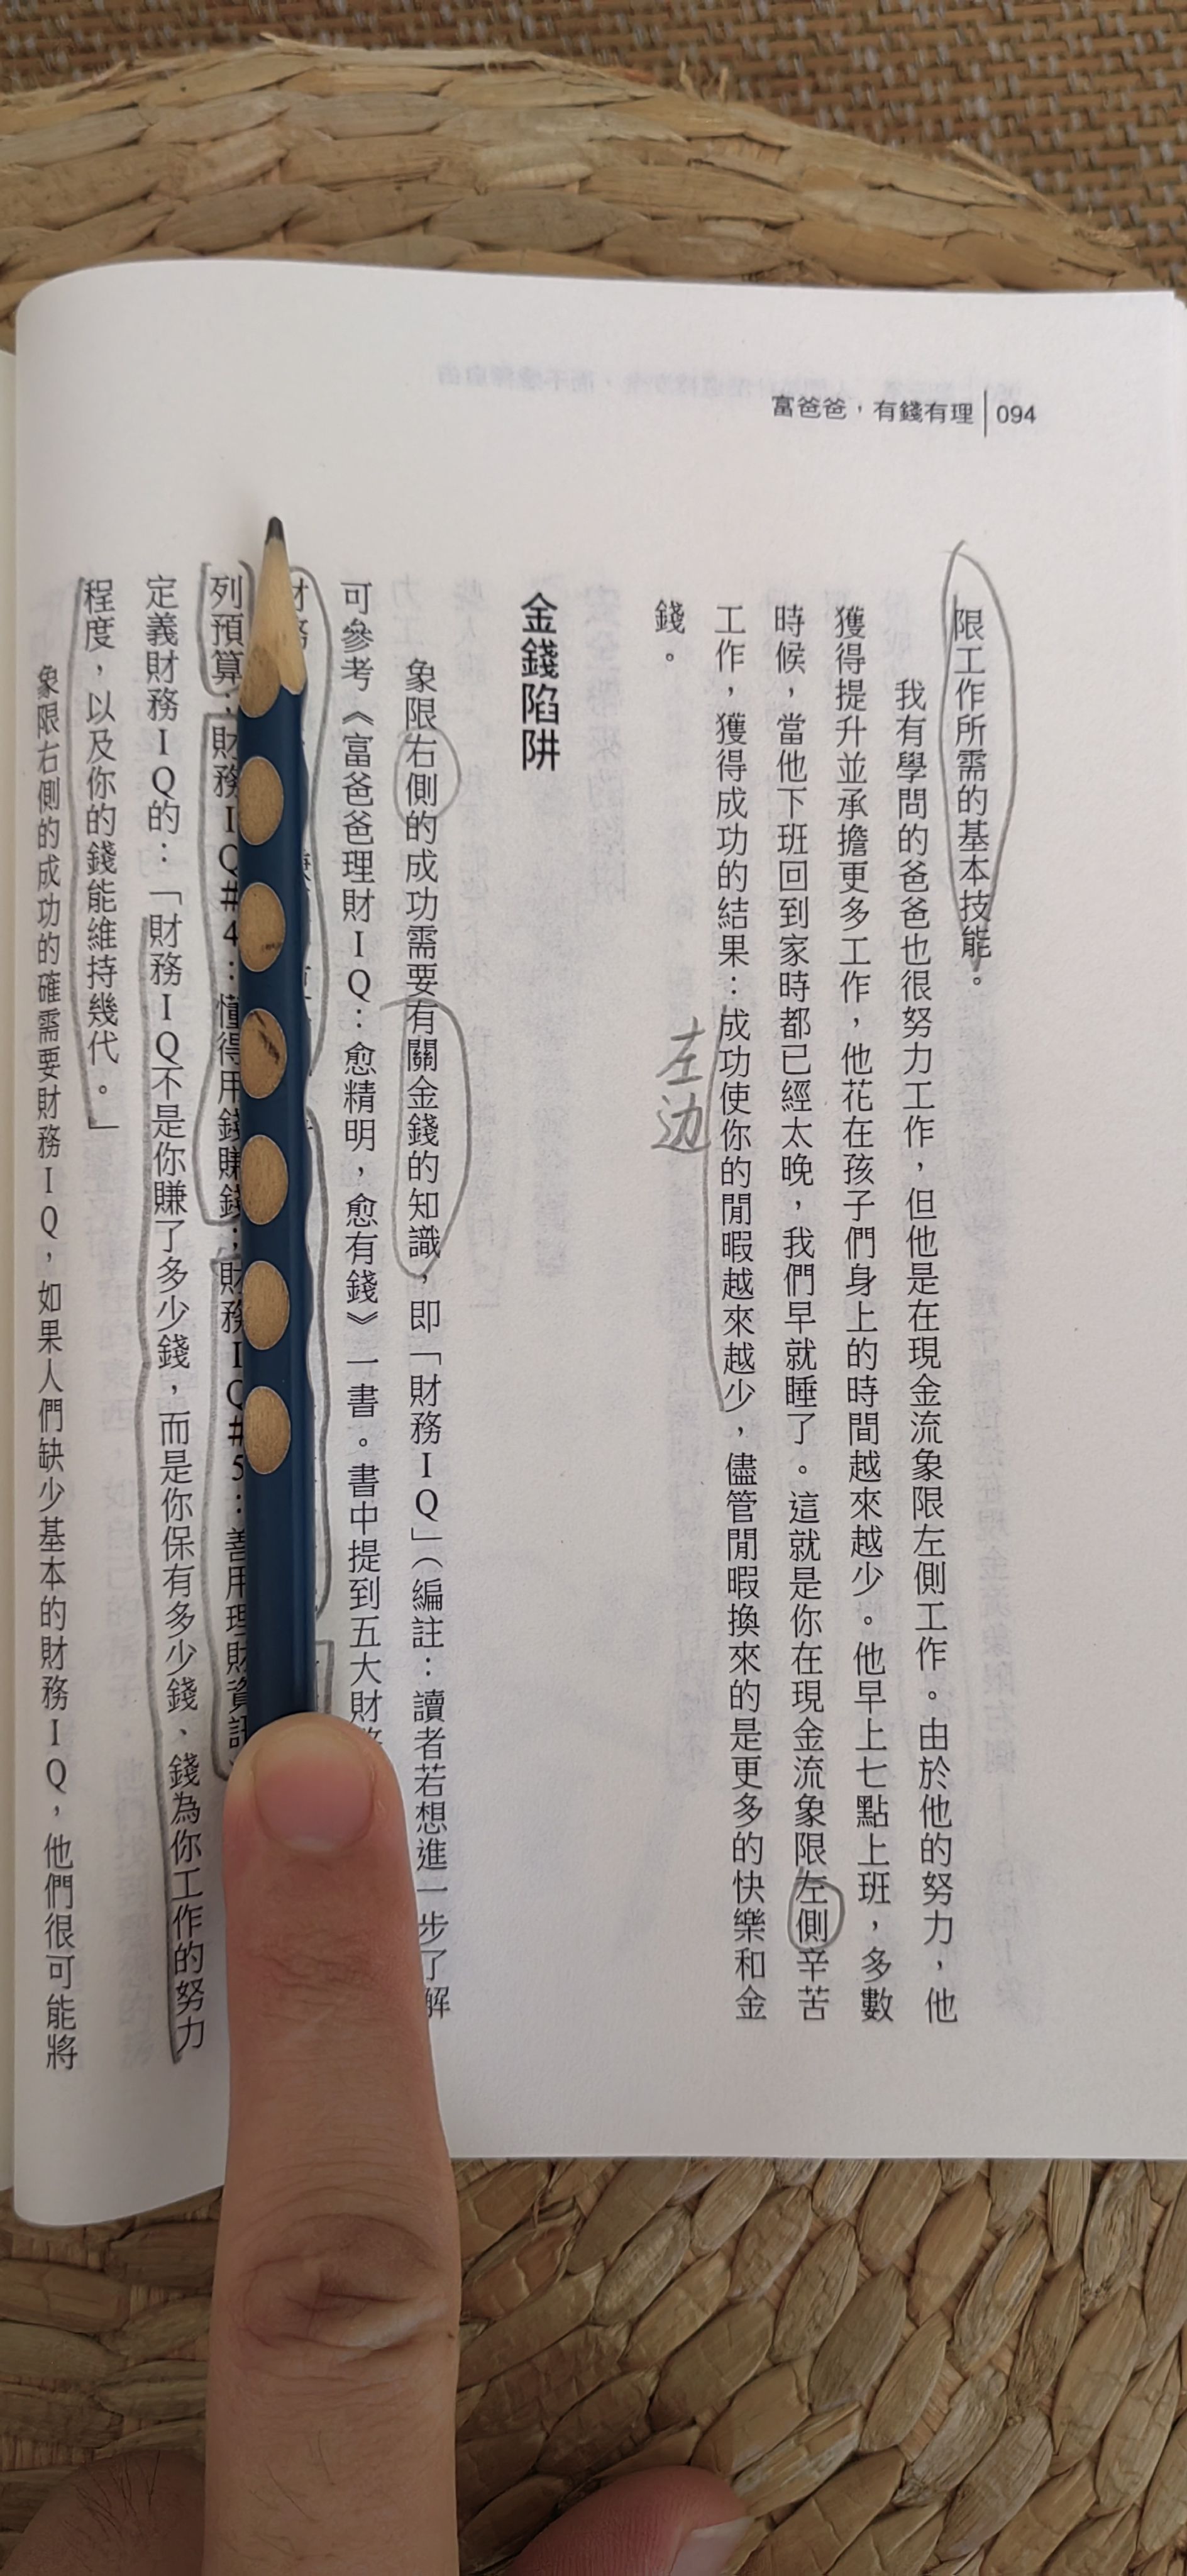 富爸爸，有錢有理 094
限工作所需的基本技能。
我有學問的爸爸也很努力工作，但他是在現金流象限左側工作。由於他的努力，他
獲得提升並承擔更多工作，他花在孩子們身上的時間越來越少。他早上七點上班，多數
時候，當他下班回到家時都已經太晚，我們早就睡了。這就是你在現金流象限左側辛苦
工作，獲得成功的結果：成功使你的閒暇越來越少，儘管閒暇換來的是更多的快樂和金
錢。
左边
金錢陷阱
象限右側的成功需要有關金錢的知識，即「財務IQ」（編註：讀者若想進一步了解
可參考《富爸爸理財IQ：愈精明，愈有錢》一書。書中提到五大財
財務
列預算；財務IQ#4：懂得用錢賺錢；財務IQ#5：善用理財資訊
定義財務IQ的：「財務IQ不是你賺了多少錢，而是你保有多少錢、錢為你工作的努力
程度，以及你的錢能維持幾代。」
象限右側的成功的確需要財務IQ，如果人們缺少基本的財務IQ，他們很可能將